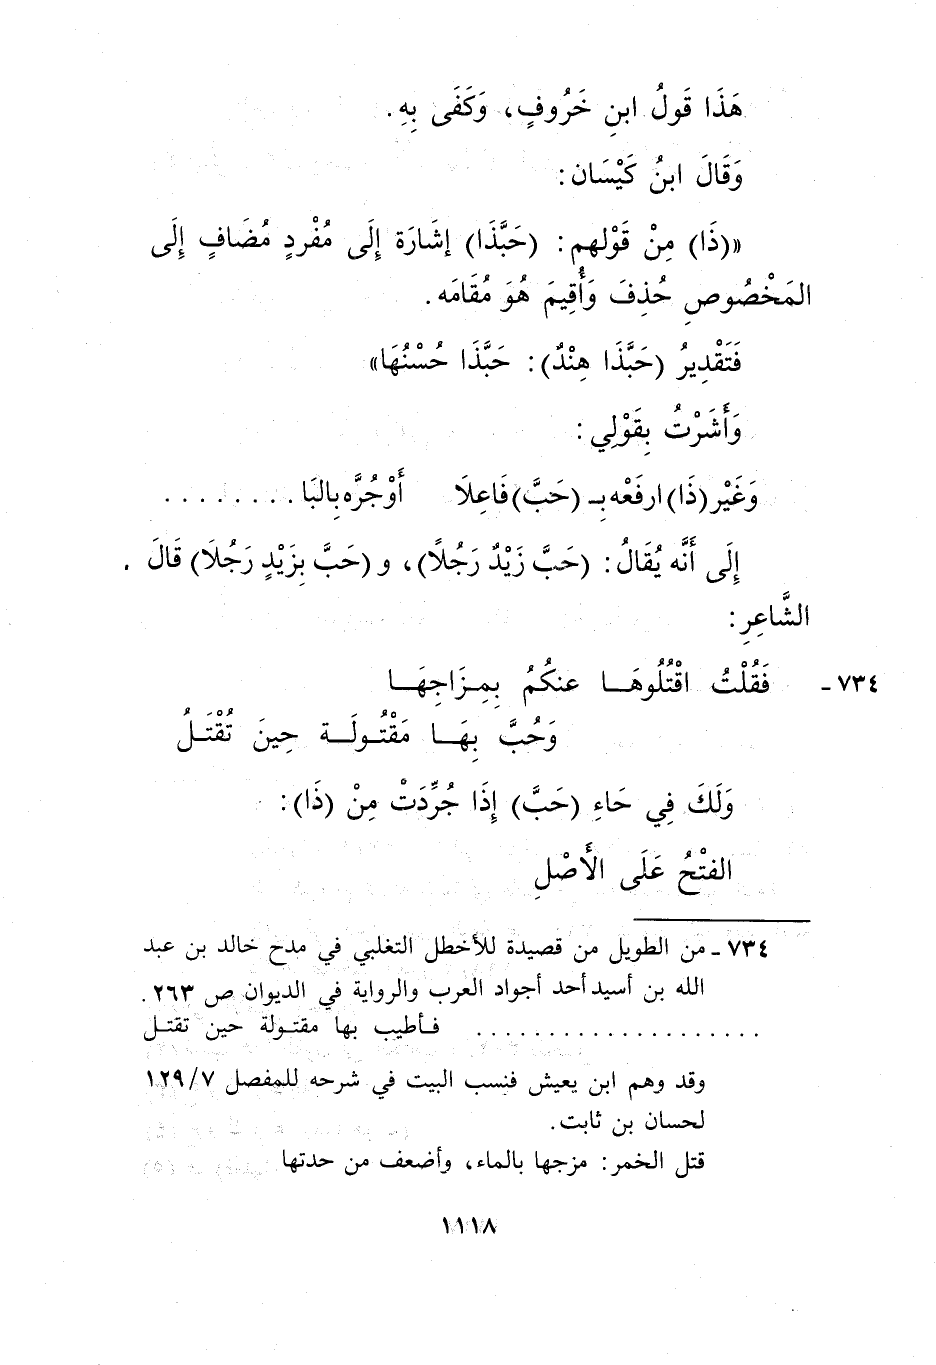 هَذَا قَولُ ابنِ خَرُوفٍ، وَكَفَى بِهِ.
وَقَالَ ابنُ كَيْسَان:
«(ذَا) مِنْ قَوْلهِم: (حَبَّذَا) إشَارَة إِلَى مُفْردٍ مُضَافٍ إِلَى
المَخْصُوصِ حُذِفَ وَأُقِيمَ هُوَ مُقَامَه.
فَتَقْدِيرُ (حَبَّذَا هِنْدٌ): حَبَّذَا حُسْنُهَا»
وَأَشَرْتُ بِقَوْلِي:
وَغَيْر (ذَا) ارفَعْه بِـ (حَبَّ) فَاعِلَا أَوْ جُرَّه بِالبَا . . . . . . . .
إِلَى أَنَّه يُقَالُ: (حَبَّ زَيْدٌ رَجُلًا)، و (حَبَّ بِزَيْدٍ رَجُلَا) قَالَ
الشَّاعِرِ:
٧٣٤ - فَقُلْتُ اقْتُلُوهَا عنكُمُ بِمِزَاجِهَا
وَحُبَّ بِهَا مَقْتُولَة حِينَ تُقْتَلُ
وَلَكَ فِي حَاءِ (حَبَّ) إِذَا جُرِّدَتْ مِنْ (ذَا):
الفتْحُ عَلَى الأَصْلِ
٧٣٤ - من الطويل من قصيدة للأخطل التغلبي في مدح خالد بن عبد
الله بن أسيد أحد أجواد العرب والرواية في الديوان ص ٢٦٣.
. . . . . . . . . . . . . . . . . . . . فأطيب بها مقتولة حين تقتل
وقد وهم ابن يعيش فنسب البيت في شرحه للمفصل ١٢٩/٧
لحسان بن ثابت.
قتل الخمر: مزجها بالماء، وأضعف من حدتها
١١١٨